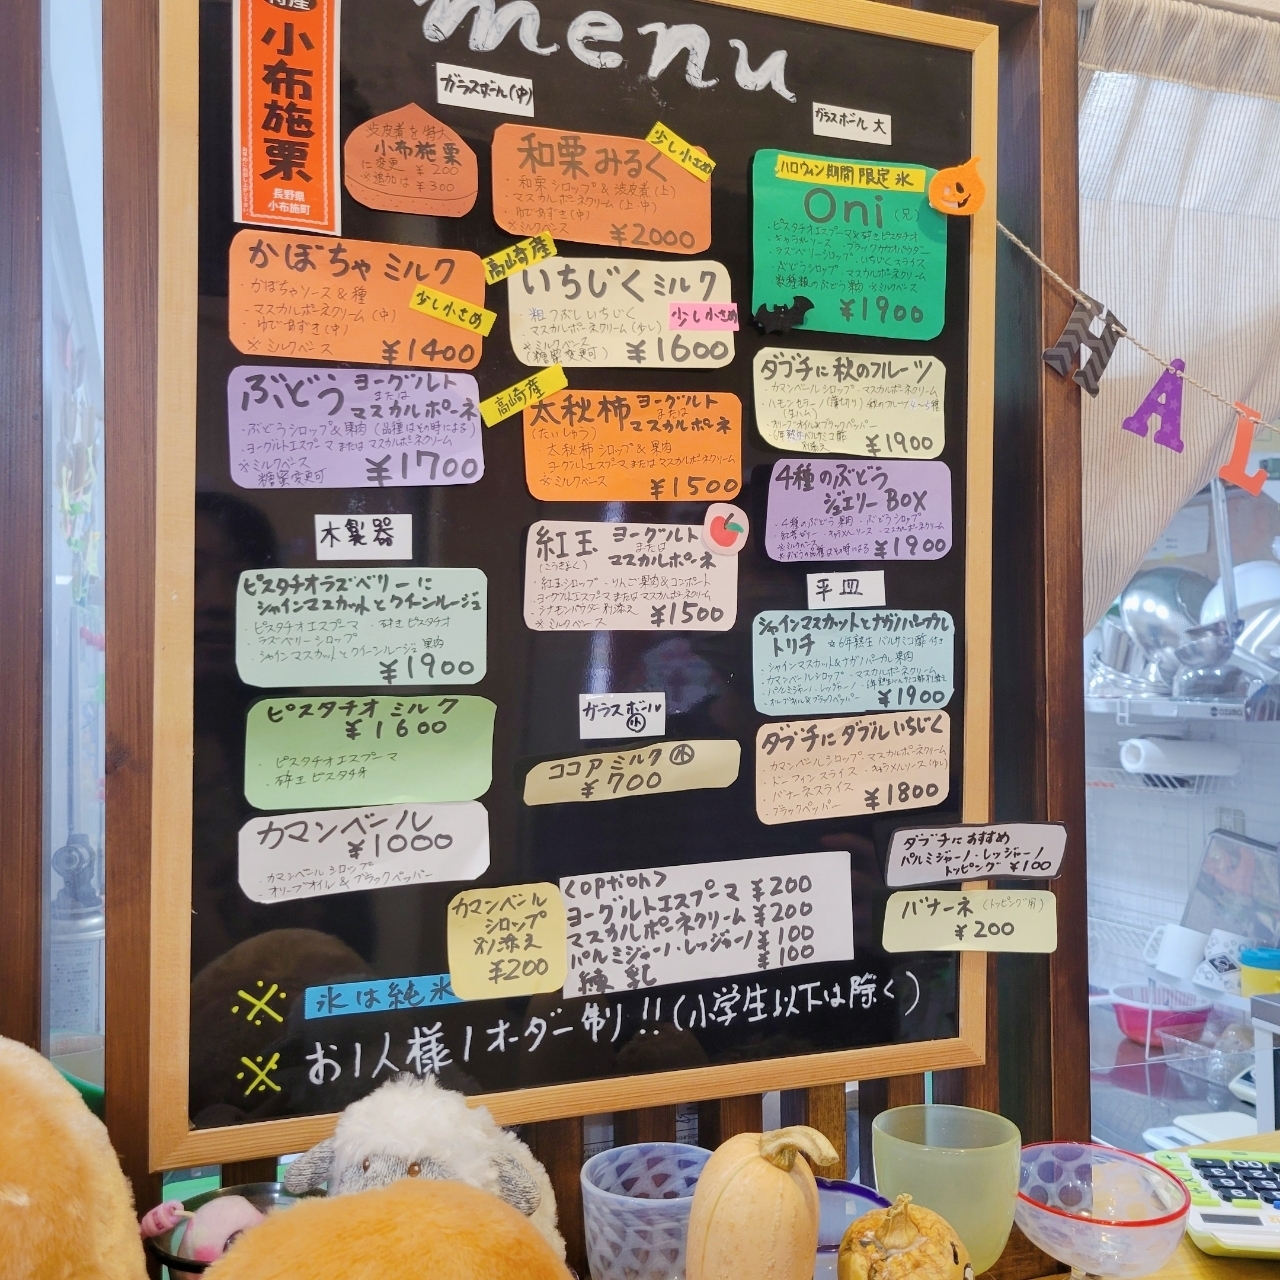 menu
特産
小布施栗
長野県
小布施町
ガラスボール(中)
渋皮煮を特大
小布施栗
に変更 ¥200
※追加は ¥300
和栗みるく
少し小さめ
・和栗シロップ&渋皮煮(上)
・マスカルポーネクリーム(上・中)
・ゆであずき(中)
※ミルクベース
¥2000
かぼちゃミルク
・かぼちゃソース&種
少し小さめ
・マスカルポーネクリーム(中)
・ゆであずき(中)
※ミルクベース
¥1400
高崎産
いちじくミルク
・粗つぶしいちじく
少し小さめ
・マスカルポーネクリーム(少し)
※ミルクベース
(糖蜜変更可)
¥1600
ぶどう ヨーグルト
または
マスカルポーネ
・ぶどうシロップ&果肉(品種はその時による)
・ヨーグルトエスプーマまたはマスカルポーネクリーム
※ミルクベース
糖蜜変更可
¥1700
高崎産
太秋柿 ヨーグルト
または
マスカルポーネ
(たいしゅう)
・太秋柿シロップ&果肉
ヨーグルトエスプーマまたはマスカルポーネクリーム
※ミルクベース
¥1500
紅玉 ヨーグルト
または
マスカルポーネ
(こうぎょく)
・紅玉シロップ・りんご果肉&コンポート
・ヨーグルトエスプーマまたはマスカルポーネクリーム
・シナモンパウダー別添え
※ミルクベース
¥1500
木製器
ピスタチオラズベリーに
シャインマスカットとクイーンルージュ
・ピスタチオエスプーマ ・砕きピスタチオ
・ラズベリーシロップ
・シャインマスカットとクイーンルージュ果肉
¥1900
ピスタチオミルク
¥1600
・ピスタチオエスプーマ
・砕きピスタチオ
カマンベール
¥1000
・カマンベールシロップ
・オリーブオイル&ブラックペッパー
ガラスボール
小
ココアミルク 小
¥700
ガラスボール 大
ハロウィン期間限定氷
Oni(兄)
・ピスタチオエスプーマ&砕きピスタチオ
・キャラメルソース ・ブラックココアパウダー
・ラズベリーシロップ ・いちじくスライス
・ぶどうシロップ ・マスカルポーネクリーム
・数種類のぶどう果肉 ※ミルクベース
¥1900
ダブチに秋のフルーツ
・カマンベールシロップ・マスカルポーネクリーム
・ハモンセラーノ(薄切り) 秋のフルーツ4〜5種
(生ハム)
・オリーブオイル&ブラックペッパー
・6年熟生バルサミコ酢
別添え
¥1900
4種のぶどう
ジュエリーBOX
・4種のぶどう果肉 ・ぶどうシロップ
・紅茶ゼリー・キャラメルソース ・マスカルポーネクリーム
※ミルクベース
※ぶどうの品種はその時による
¥1900
平皿
シャインマスカットとナガノパープル
トリチ ☆6年熟生バルサミコ酢付き
・シャインマスカット&ナガノパープル果肉
・カマンベールシロップ ・マスカルポーネクリーム
・パルミジャーノ・レッジャーノ ・6年熟生バルサミコ酢別添え
・オリーブオイル&ブラックペッパー
¥1900
ダブチにダブルいちじく
・カマンベールシロップ マスカルポーネクリーム
・ドーフィンスライス ・キャラメルソース
・バナーネスライス
・ブラックペッパー
¥1800
ダブチにおすすめ
パルミジャーノ・レッジャーノ
トッピング ¥100
バナーネ(トッピング用)
¥200
カマンベール
シロップ
別添え
¥200
<option>
ヨーグルトエスプーマ ¥200
マスカルポーネクリーム ¥200
パルミジャーノ・レッジャーノ ¥100
練乳 ¥100
※ 氷は純氷
※ お1人様1オーダー制!!(小学生以下は除く)
HAL